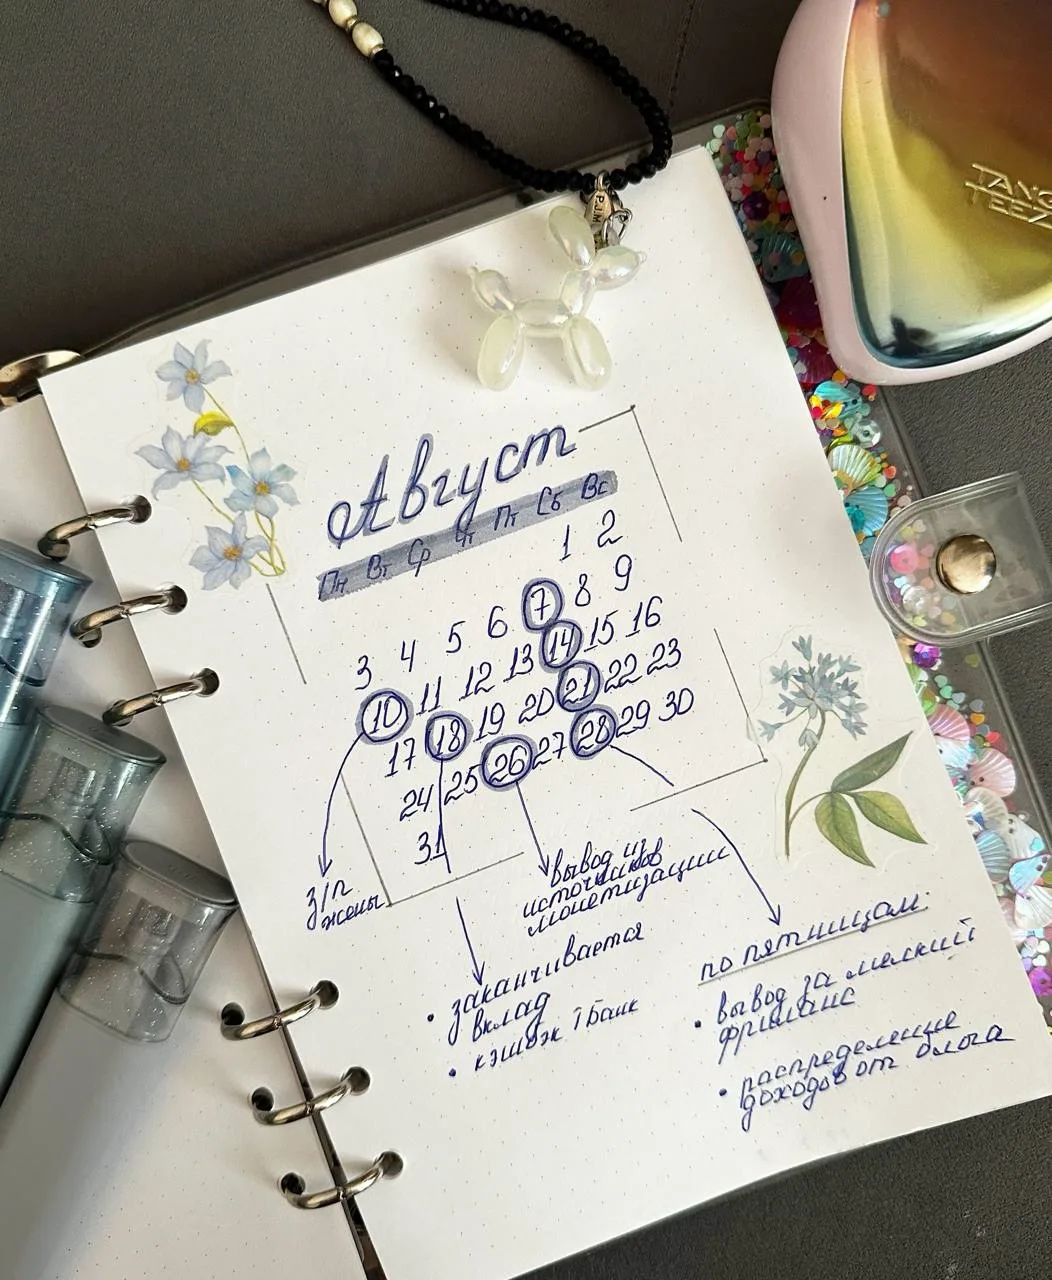 P.J.M
TANG
TEEZ
Август
Пн Вт Ср Чт Пт Сб Вс
1 2
3 4 5 6 7 8 9
10 11 12 13 14 15 16
17 18 19 20 21 22 23
24 25 26 27 28 29 30
31
з/п
жены
вывод из
источников
монетизации
• заканчивается
вклад
• кэшбэк Т Банк
по пятницам:
• вывод за мелкий
фриланс
• распределение
доходов от блога